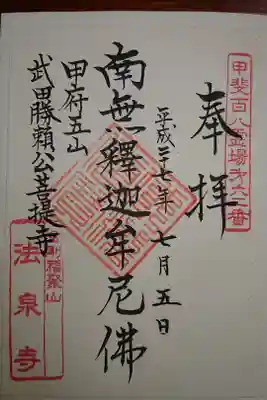 甲斐百八霊場才六二番
奉拝
平成二十七年七月五日
南無釋迦牟尼佛
甲府五山
武田勝頼公菩提寺
福聚山
法泉寺